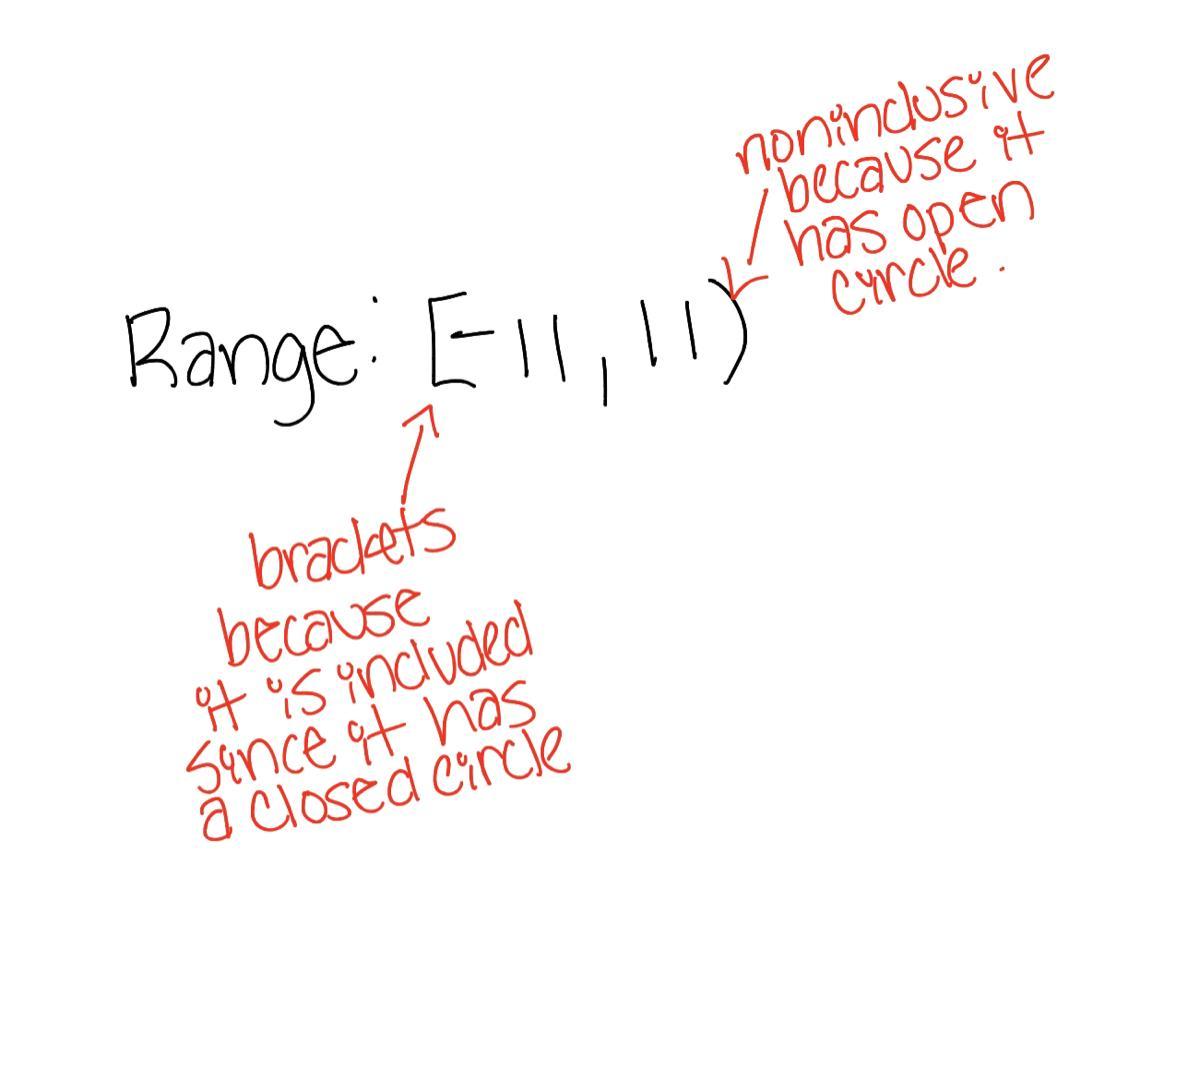 noninclusive
because it
has open
circle.
Range: [-11, 11)
brackets
because
it is included
since it has
a closed circle